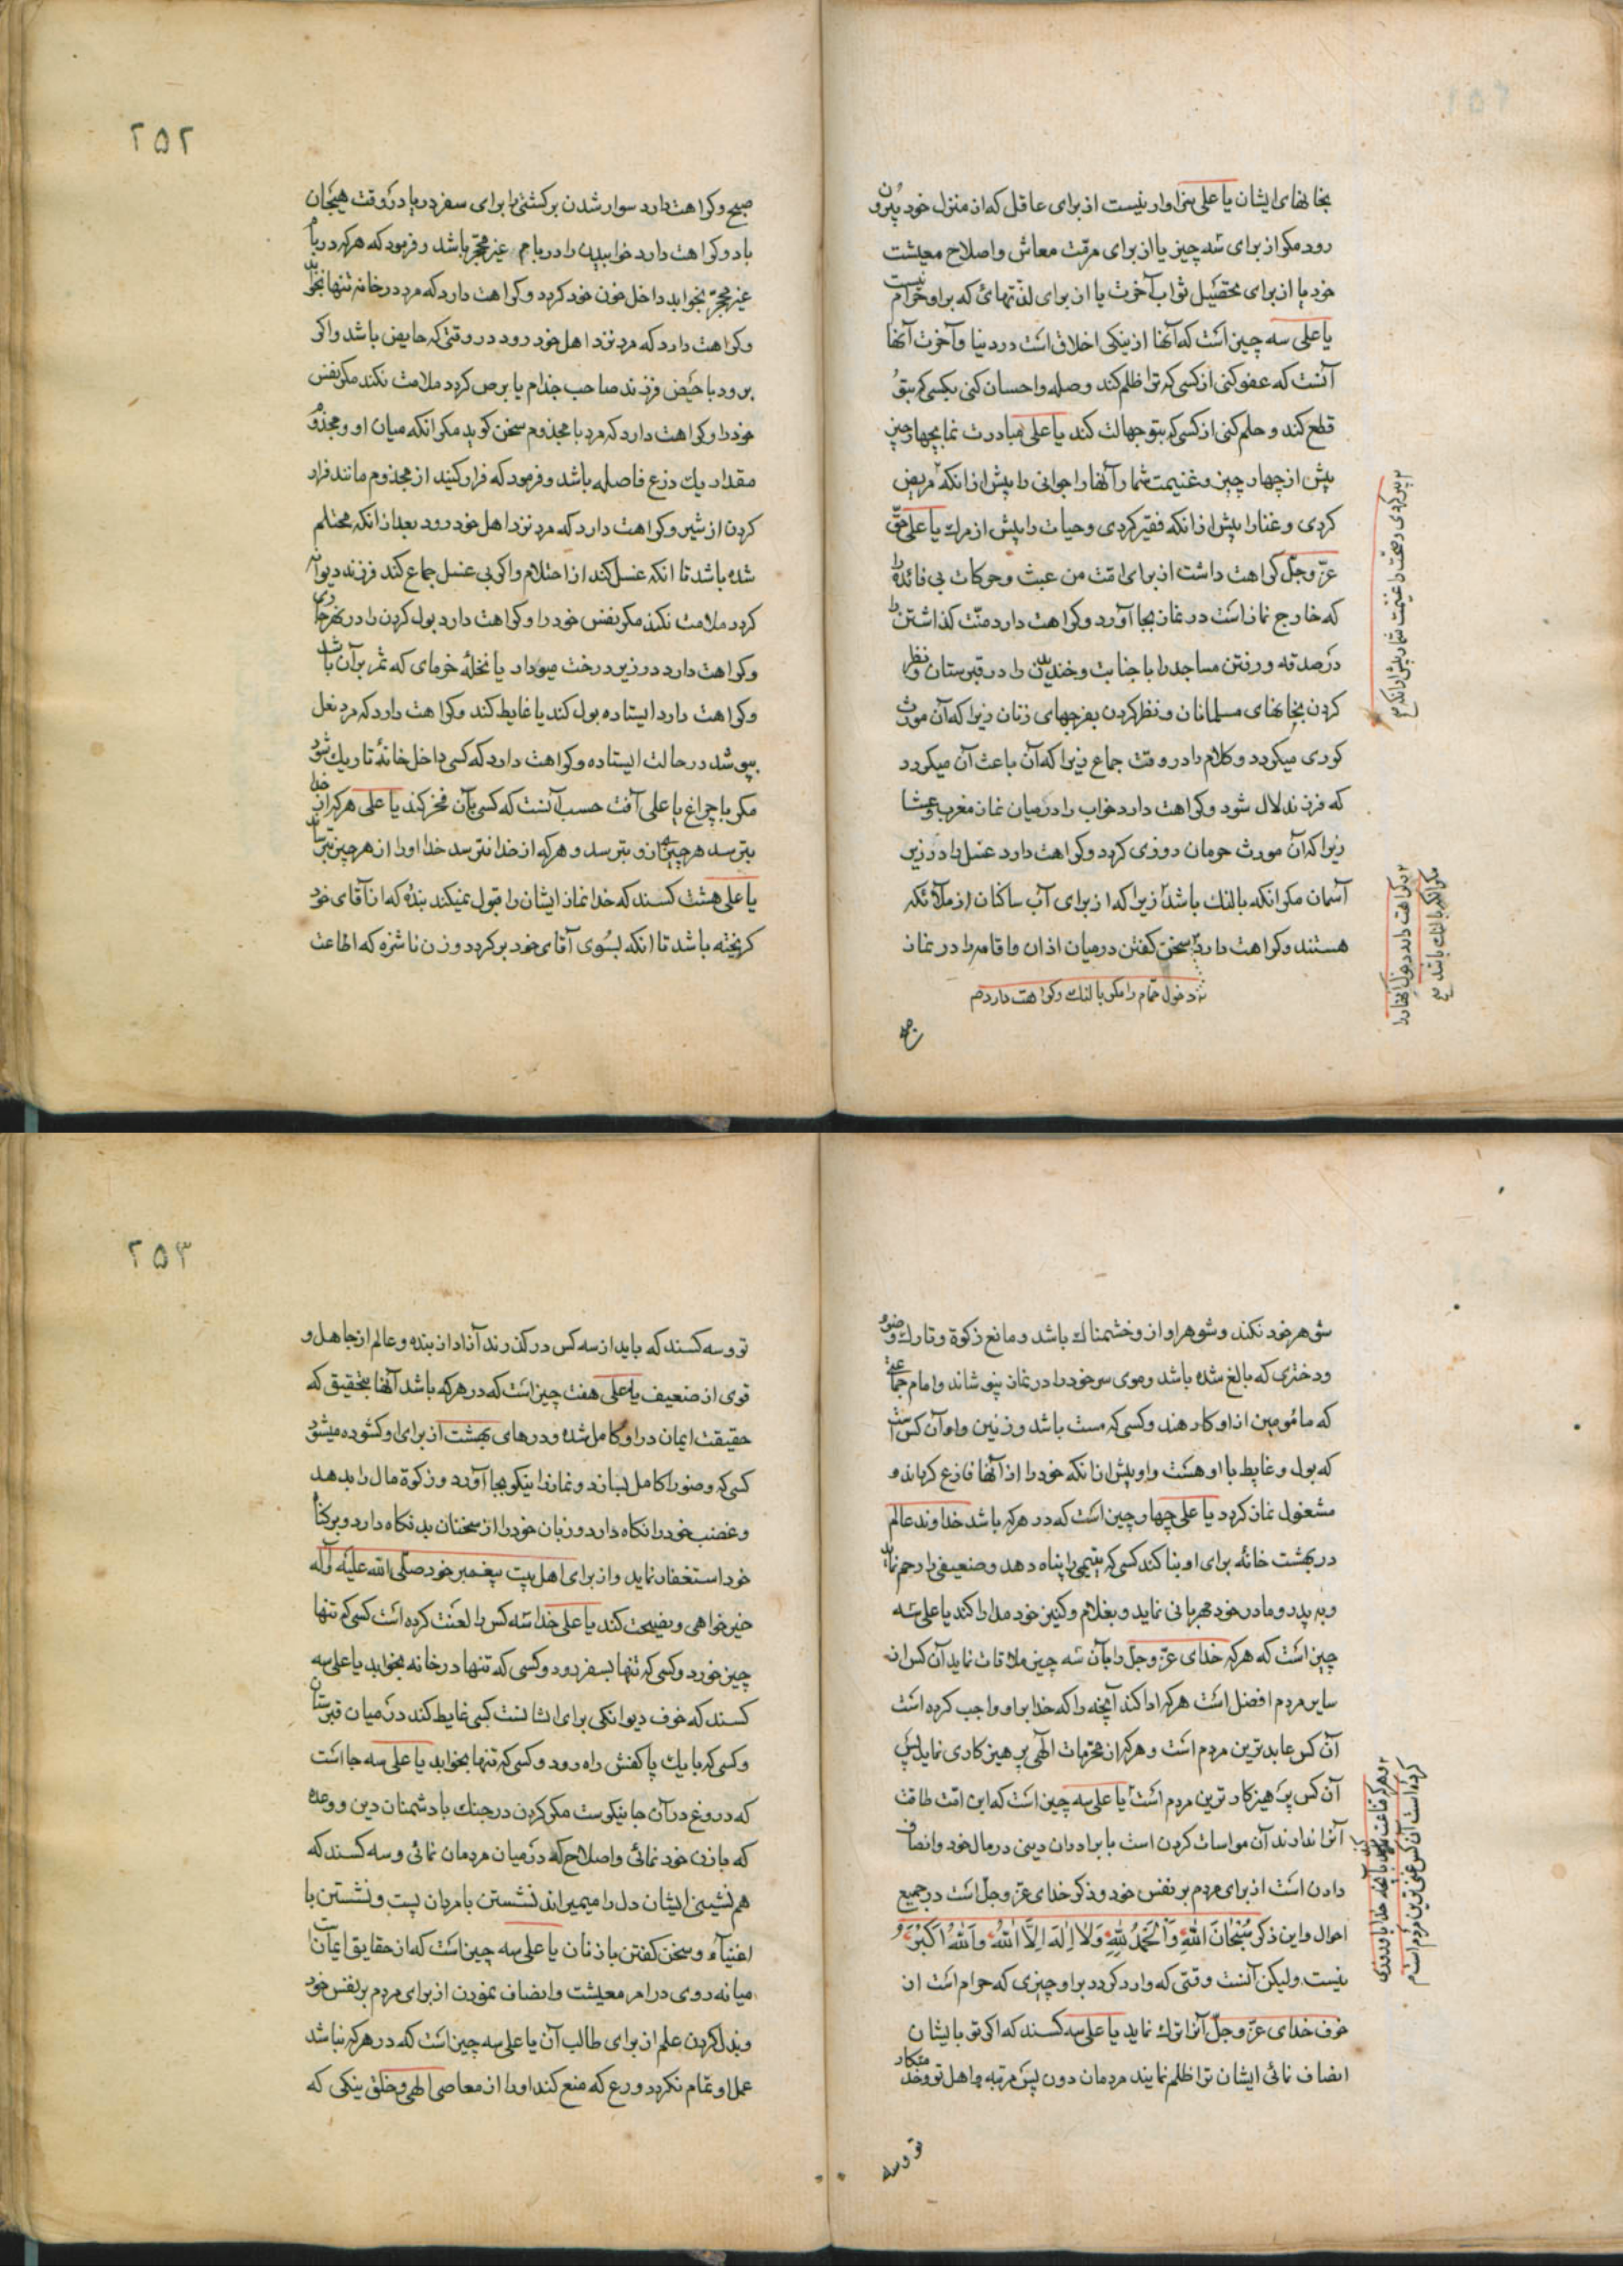 بخانهای ایشان یا علی سزاوار نیست از برای عاقل که از منزل خود بیرون
رود مکر از برای سه چیز یا از برای مرمّت معاش و اصلاح معیشت
خود یا از برای تحصیل ثواب آخرت یا از برای لذتهائ که بر او حرام نیست
یا علی سه چیز است که آنها از نیکی اخلاق است در دنیا و آخرت آنها
آنست که عفو کنی از کسی که ترا ظلم کند و صله و احسان کنی بکسی که بتو
قطع کند و حلم کنی از کسی که بتو جهالت کند یا علی مبادرت نما بچهار چیز
پیش از چهار چیز و غنیمت شمار آنها را جوانی را پیش از انکه مریض
۲ پیر کردی و صحّت را غنیمت شمار پیش از انکه
کردی و غنا را پیش از انکه فقیر کردی و حیات را پیش از مرك یا علی حقّ
عزّ وجلّ کراهت داشت از برای امّت من عبث و حرکات بی فائده را
که خارج نماز است در نماز بجا آورد و کراهت دارد منّت کذاشتن را
در صدقه و رفتن مساجد را با جنابت و خندیدن را در قبرستان و نظر
کردن بخانهای مسلمانان و نظر کردن بفرجهای زنان زیرا که آن مورث
کوری میکردد و کلام را در وقت جماع زیرا که آن باعث آن میکردد
که فرزند لال شود و کراهت دارد خواب را در میان نماز مغرب و عشا
زیرا که آن مورث حرمان روزی کردد و کراهت دارد غسل را در زیر
آسمان مکر انکه بالنك باشد زیرا که از برای آب ساکنان از ملائکه
۲ و کراهت دارد دخول آنها را
مکر انکه بالنك باشد
هستند و کراهت دارد سخن کفتن در میان اذان و اقامه را در نماز
نزد دخول حمّام را مکر بالنك و کراهت دارد
صبح
۲۵۲
صبح و کراهت دارد سوار شدن بر کشتی را برای سفر دریا در وقت هیجان
باد و کراهت دارد خوابیدن را در بام غیر محجّر باشد و فرمود که هر که در بام
غیر محجّر بخوابد داخل خون خود کردد و کراهت دارد که مرد در خانه تنها بخوابد
و کراهت دارد که مرد نزد اهل خود رود در وقتی که حایض باشد و اکر
برود با حیض فرزند صاحب جذام یا برص کردد ملامت نکند مکر نفس
خود را و کراهت دارد که مرد با مجذوم سخن کوید مکر انکه میان او و مجذوم
مقدار یك ذرع فاصله باشد و فرمود که فرار کنید از مجذوم مانند فرار
کردن از شیر و کراهت دارد که مرد نزد اهل خود رود بعد از انکه محتلم
شده باشد تا انکه غسل کند از احتلام و اکر بی غسل جماع کند فرزند دیوانه
کردد ملامت نکند مکر نفس خود را و کراهت دارد بول کردن را در نهر جاری
و کراهت دارد در زیر درخت میوه دار یا نخلهٔ خرمای که ثمر بر آن باشد
و کراهت دارد ایستاده بول کند یا غایط کند و کراهت دارد که مرد نعل
بپوشد در حالت ایستاده و کراهت دارد که کسی داخل خانهٔ تاریك شود
مکر با چراغ یا علی آفت حسب آنست که کسی بآن فخر کند یا علی هر که از خدا
بترسد هر چیز از و بترسد و هر که از خدا نترسد خدا او را از هر چیز بترساند
یا علی هشت کسند که خدا نماز ایشان را قبول نمیکند بنده که از آقای خود
کریخته باشد تا انکه بسوی آقای خود بر کردد و زن ناشزه که اطاعت
شوهر خود نکند و شوهر او از و خشمناك باشد و مانع زکوة و تارك وضو
و دختری که بالغ شده باشد و موی سر خود را در نماز نپوشاند و امام جماعت
که مأمومین از او کارهند و کسی که مست باشد و زنین و او آن کس است
که بول و غایط با او هست و او پیش از انکه خود را از آنها فارغ کرداند و
مشغول نماز کردد یا علی چهار چیز است که در هر که باشد خداوند عالم
در بهشت خانهٔ برای او بنا کند کسی که یتیمی را پناه دهد و ضعیفی را رحم نماید
و به پدر و مادر خود مهربانی نماید و بغلام و کنیز خود مدارا کند یا علی سه
چیز است که هر که خدای عزّ وجلّ را بآن سه چیز ملاقات نماید آن کس از
سایر مردم افضل است هر که ادا کند آنچه را که خدا بر او واجب کرده است
آن کس عابدترین مردم است و هر که از محرّمات الهی پرهیز کاری نماید پس
آن کس پرهیز کارترین مردم است یا علی سه چیز است که این امّت طاقت
۲ و هر که قناعت نماید بآنچه خدا باو روزی
کرده است آن کس غنی ترین مردم است
آنرا ندارند آن مواسات کردن است با برادران دینی در مال خود و انصاف
دادن است از برای مردم بر نفس خود و ذکر خدای عزّ وجلّ است در جمیع
احوال و این ذکر سُبْحٰانَ اللّٰهِ وَالْحَمْدُ لِلّٰهِ وَلاٰ اِلٰهَ اِلاَّ اللّٰهُ وَاللّٰهُ اَکْبَرُ
نیست ولیکن آنست وقتی که وارد کردد بر او چیزی که حرام است از
خوف خدای عزّ وجلّ آنرا ترك نماید یا علی سه کسند که اکر تو با ایشان
انصاف نمائی ایشان ترا ظلم نمایند مردمان دون پس مرتبه و اهل تو و خدمتکار
تو و سه
۲۵۳
تو و سه کسند که باید از سه کس در کذرند آزاد از بنده و عالم از جاهل و
قوی از ضعیف یا علی هفت چیز است که در هر که باشد آنها بتحقیق که
حقیقت ایمان در او کامل شده و درهای بهشت از برای او کشوده میشود
کسی که وضو را کامل بسازد و نماز را نیکو بجا آورد و زکوة مال را بدهد
و غضب خود را نکاه دارد و زبان خود را از سخنان بد نکاه دارد و بر کناه
خود استغفار نماید و از برای اهل بیت پیغمبر خود صلّی اللّه علیه و آله
خیر خواهی و نصیحت کند یا علی خدا سه کس را لعنت کرده است کسی که تنها
چیز خورد و کسی که تنها بسفر رود و کسی که تنها در خانه بخوابد یا علی سه
کسند که خوف دیوانکی برای ایشانست کسی غایط کند در میان قبرستان
و کسی که با یك پا کفش راه رود و کسی که تنها بخوابد یا علی سه جا است
که دروغ در آن جا نیکوست مکر کردن در جنك با دشمنان دین و وعده
که با زن خود نمائی و اصلاح که در میان مردمان نمائی و سه کسند که
هم نشینی ایشان دل را میمیراند نشستن با مردان پست و نشستن با
اغنیاء و سخن کفتن با زنان یا علی سه چیز است که از حقایق ایمان است
میانه روی در امر معیشت و انصاف نمودن از برای مردم بر نفس خود
و بذل کردن علم از برای طالب آن یا علی سه چیز است که در هر که نباشد
عمل او تمام نکردد ورع که منع کند او را از معاصی الهی و خلق نیکی که